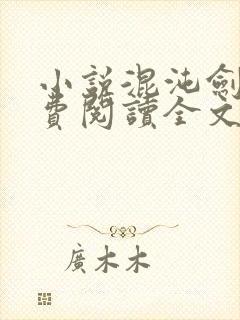 小說混沌劍
費閱讀全文
廣木木